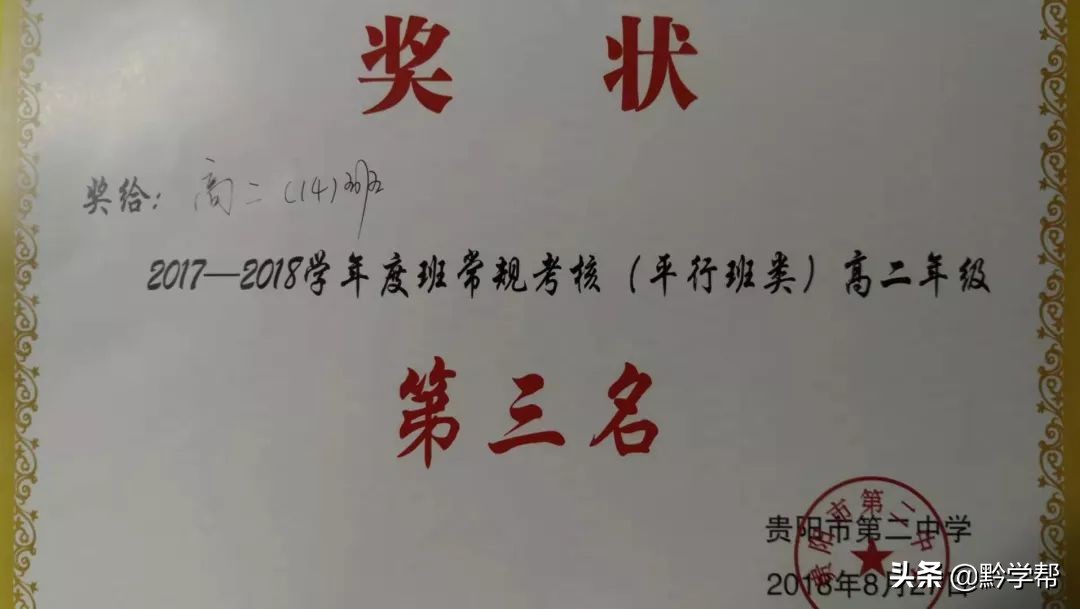 奖状
奖给：高二（14）班
2017—2018学年度班常规考核（平行班类）高二年级
第三名
贵阳市第二中学
2018年8月27日
贵阳市第二中
头条 @黔学帮